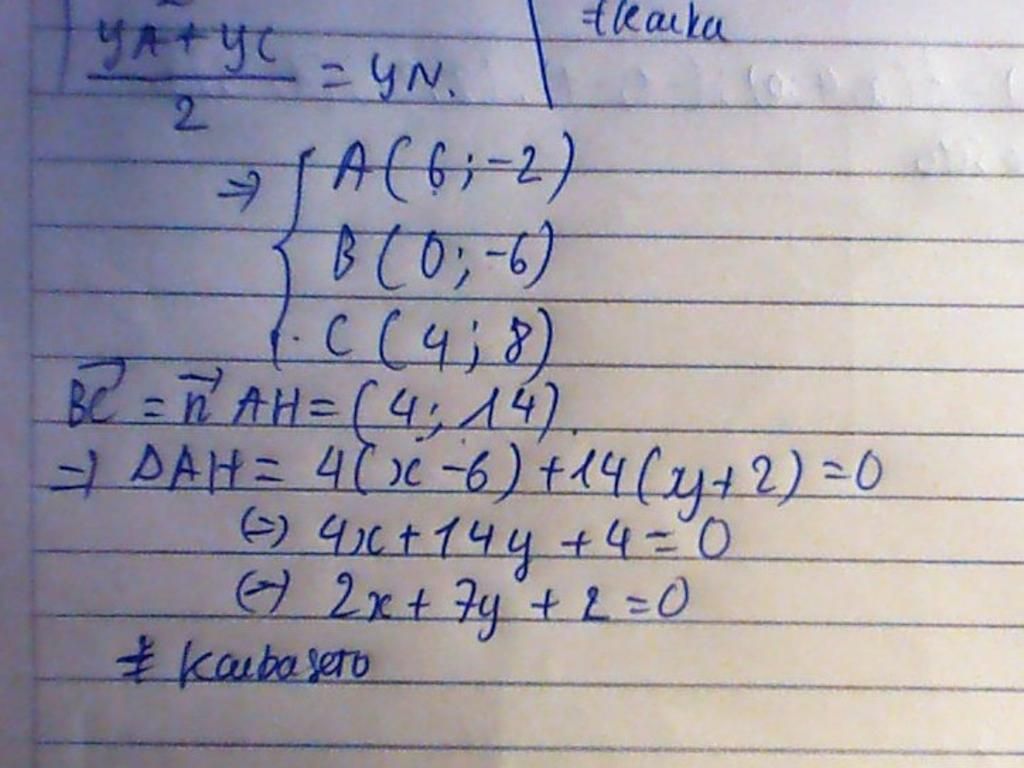 ≠ Kaiba
(yA + yC)/2 = yN.
⇒ { A(6;-2)
B(0;-6)
C(4;8)
B͞C⃗ = n⃗ AH = (4;14).
⇒ ΔAH = 4(x-6)+14(y+2)=0
⇔ 4x+14y+4=0
⇔ 2x+7y+2=0
≠ Kaibaseto